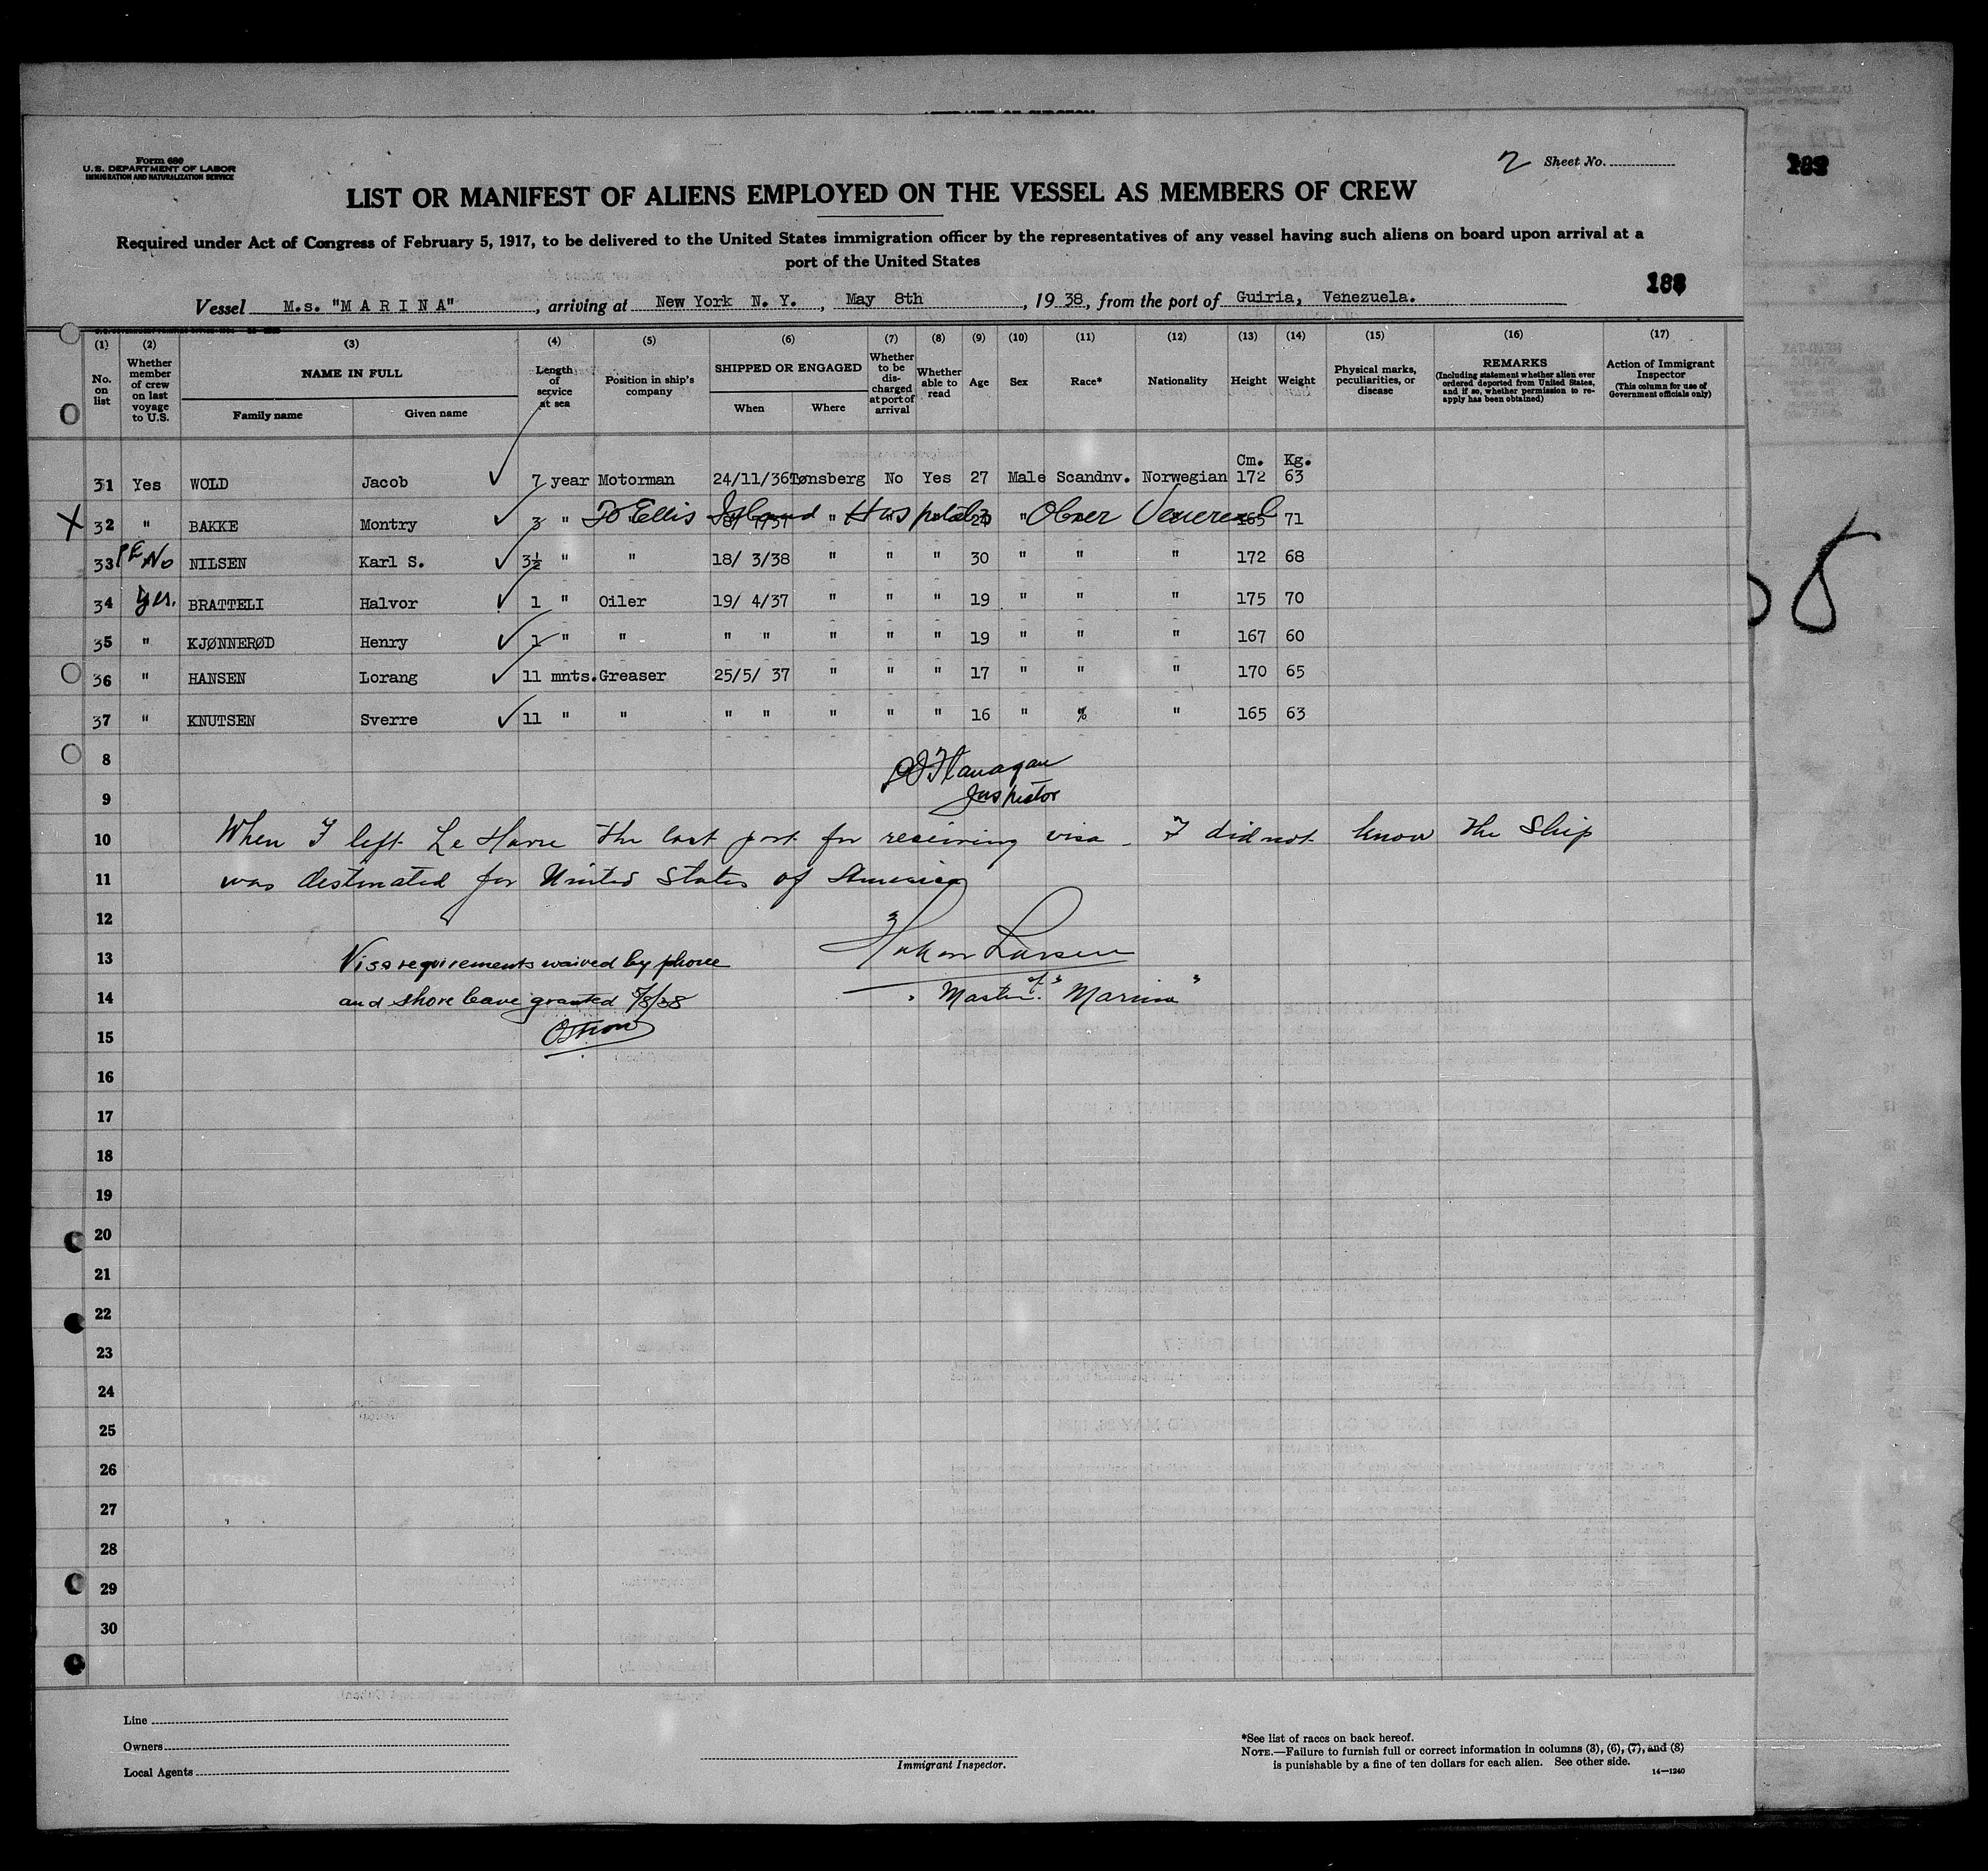 Form 680
U.S. DEPARTMENT OF LABOR
IMMIGRATION AND NATURALIZATION SERVICE
2 Sheet No.
LIST OR MANIFEST OF ALIENS EMPLOYED ON THE VESSEL AS MEMBERS OF CREW
Required under Act of Congress of February 5, 1917, to be delivered to the United States immigration officer by the representatives of any vessel having such aliens on board upon arrival at a
port of the United States
Vessel M.s. "MARINA", arriving at New York N. Y., May 8th, 1938, from the port of Guiria, Venezuela.
(1) (2) (3) (4) (5) (6) (7) (8) (9) (10) (11) (12) (13) (14) (15) (16) (17)
No. on list
Whether member of crew on last voyage to U.S.
NAME IN FULL
Family name Given name
Length of service at sea
Position in ship's company
SHIPPED OR ENGAGED
When Where
Whether to be discharged at port of arrival
Whether able to read
Age
Sex
Race*
Nationality
Height
Weight
Physical marks, peculiarities, or disease
REMARKS
(Including statement whether alien ever ordered deported from United States, and if so, whether permission to reapply has been obtained)
Action of Immigrant Inspector
(This column for use of Government officials only)
Cm. Kg.
31 Yes WOLD Jacob 7 year Motorman 24/11/36 Tønsberg No Yes 27 Male Scandnv. Norwegian 172 63
X 32 " BAKKE Montry 3 " To Ellis Island Hospital Venereal 165 71
33 No NILSEN Karl S. 3½ " " 18/ 3/38 " " " 30 " " " 172 68
34 Yes. BRATTELI Halvor 1 " Oiler 19/ 4/37 " " " 19 " " " 175 70
35 " KJØNNERØD Henry 1 " " " " " " " 19 " " " 167 60
36 " HANSEN Lorang 11 mnts. Greaser 25/5/ 37 " " " 17 " " " 170 65
37 " KNUTSEN Sverre 11 " " " " " " " 16 " % " 165 63
8
Flanagan
9
Inspector
10 When I left Le Havre the last port for receiving visa - I did not know the Ship
11 was destinated for United States of America
12
13 Hakon Larsen
Visa requirements waived by phone
14 Master of "Marina"
and shore leave granted 5/8/38
15
16
17
18
19
20
21
22
23
24
25
26
27
28
29
30
Line
Owners
Local Agents
Immigrant Inspector.
*See list of races on back hereof.
NOTE.—Failure to furnish full or correct information in columns (3), (6), (7), and (8)
is punishable by a fine of ten dollars for each alien. See other side.
14—1240